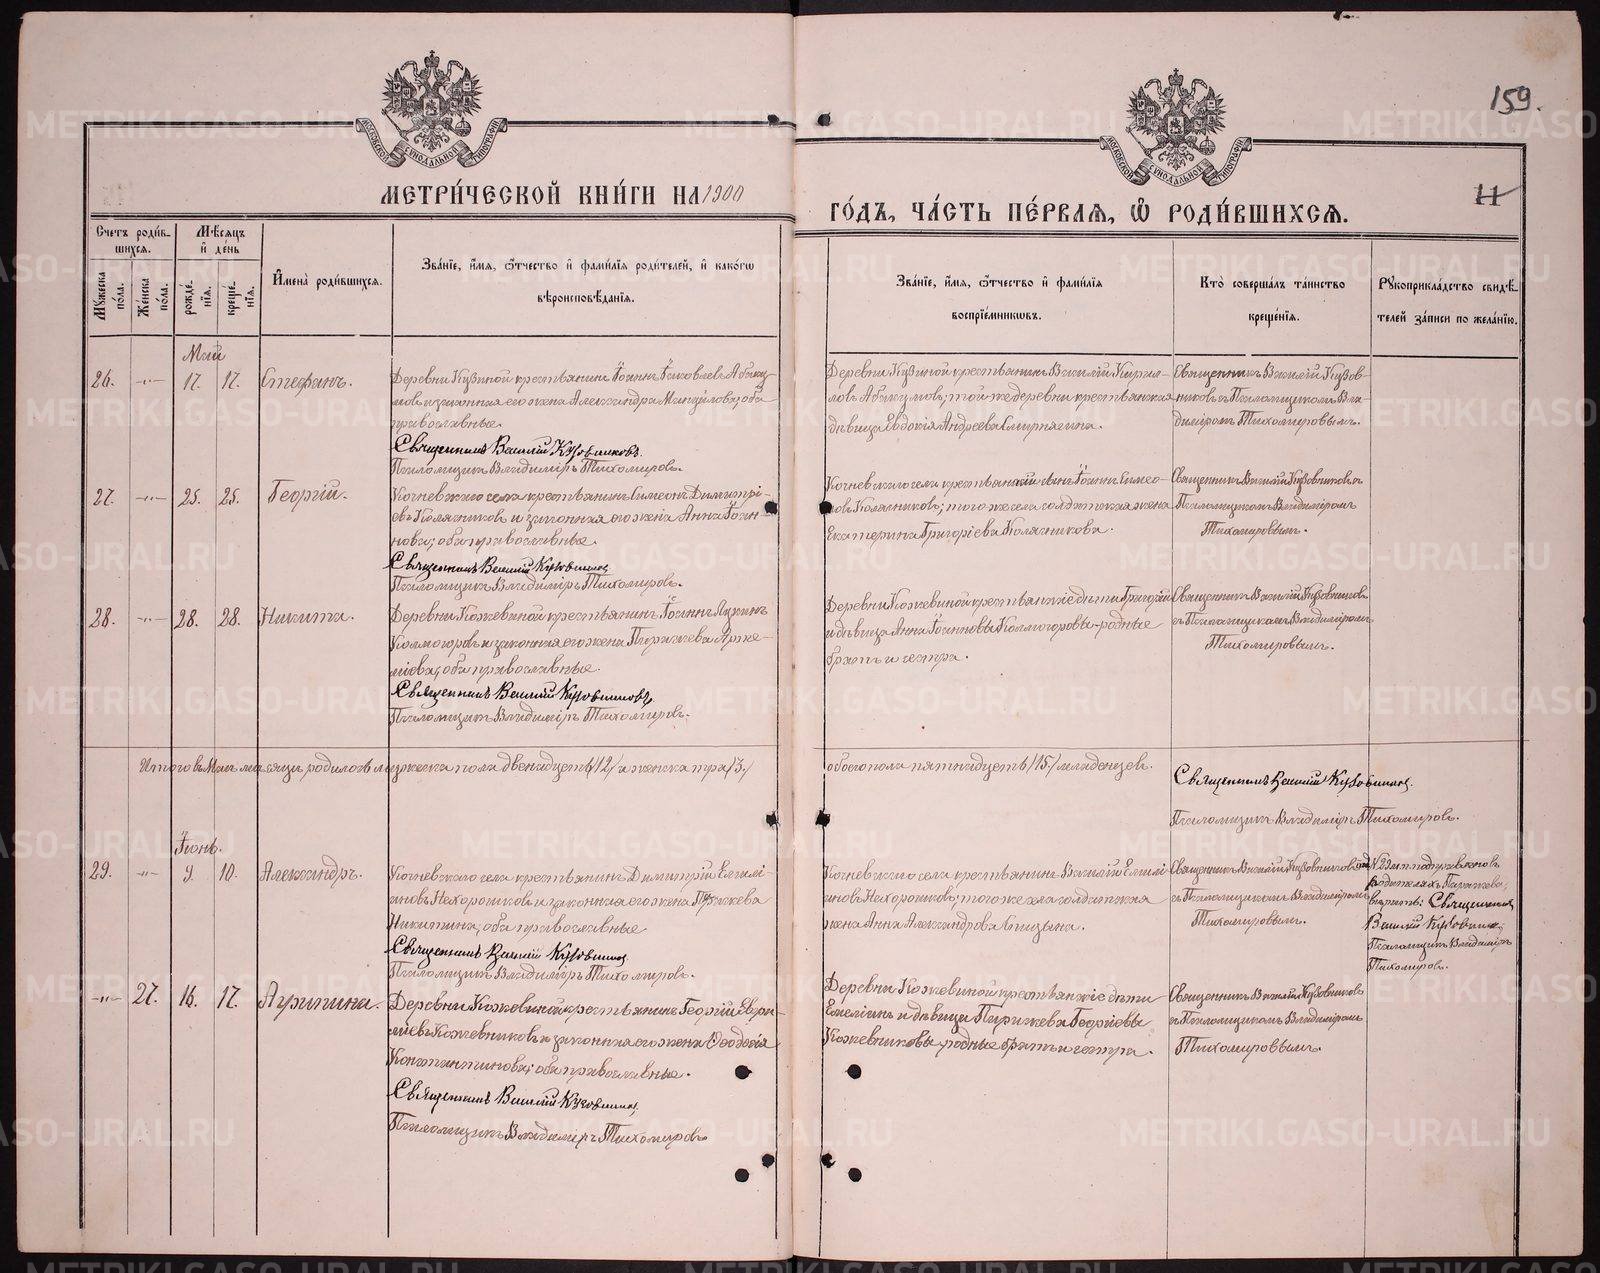 159.
МОСКОВСКОЙ СУНОДАЛЬНОЙ ТИПОГРАФІИ
МОСКОВСКОЙ СУНОДАЛЬНОЙ ТИПОГРАФІИ
МЕТРИ́ЧЕСКОЙ КНИ́ГИ НА 1900
ГО́ДЪ, ЧА́СТЬ ПЕ́РВАЯ, Ѽ РОДИ́ВШИХСЯ.
11
Счетъ роди́в-
шихся.
Мѣ́сяцъ
и҆ де́нь
Мужеска
по́ла.
Же́нска
по́ла.
рожде́-
нїя.
креще́-
нїя.
И҆мена̀ роди́вшихся.
Зва́нїе, и҆́мя, ѻ҆́тчество и҆ фами́лїя роди́телей, и҆ како́гѡ
вѣроисповѣ́данїя.
Зва́нїе, и҆́мя, ѻ҆́тчество и҆ фами́лїя
воспрїе́мникѡвъ.
Кто̀ соверша́лъ та́инство
креще́нїя.
Рꙋкоприкла́дство свидѣ́-
телей за́писи по жела́нїю.
Май
26. -"- 17. 17. Стефанъ.
Деревни Кузиной крестьянинъ Іоаннъ Іаковлевъ Абаку-
мовъ и законная его жена Александра Мануйлова; оба
православные.
Священникъ Василій Кузовниковъ.
Псаломщикъ Владиміръ Тихомировъ.
Деревни Кузиной крестьянинъ Василій Кирил-
ловъ Абакумовъ; той же деревни крестьянская
дѣвица Евдокія Андреева
Священникъ Василій Кузов-
никовъ съ Псаломщикомъ Вла-
диміромъ Тихомировымъ.
27. -"- 25. 25. Георгій.
Кочневскаго села крестьянинъ Симеонъ Димитрі-
евъ Колясниковъ и законная его жена Анна Іоан-
нова; оба православные.
Священникъ Василій Кузовниковъ
Псаломщикъ Владиміръ Тихомировъ.
Кочневскаго села крестьянскій сынъ Іоаннъ Симео-
новъ Колясниковъ; того же села солдатская жена
Екатерина Григоріева Колясникова.
Священникъ Василій Кузовниковъ съ
Псаломщикомъ Владиміромъ
Тихомировымъ.
28. -"- 28. 28. Никита.
Деревни Кожевиной крестьянинъ Іоаннъ Лукинъ
Колмогоровъ и законная его жена Параскева Арте-
міева; оба православные.
Священникъ Василій Кузовниковъ
Псаломщикъ Владиміръ Тихомировъ.
Деревни Кожевиной крестьянскіе дѣти Григорій
и дѣвица Анна Іоанновы Колмогоровы - родные
братъ и сестра.
Священникъ Василій Кузовниковъ
съ Псаломщикомъ Владиміромъ
Тихомировымъ.
Итого въ Маѣ мѣсяцѣ родилось мужеска пола двенадцать /12/ а женска три /3/
обоего пола пятнадцать /15/ младенцев.
Священникъ Василій Кузовниковъ.
Псаломщикъ Владиміръ Тихомировъ.
Іюнь.
29. -"- 9. 10. Александръ.
Кочневскаго села крестьянинъ Димитрій Емелі-
ановъ Нехорошковъ и законная его жена Параскева
Никитина; оба православные
Священникъ Василій Кузовниковъ
Псаломщикъ Владиміръ Тихомировъ.
Кочневскаго села крестьянинъ Василій Емелі-
ановъ Нехорошковъ; того же села солдатская
жена Анна Александрова
Священникъ Василій Кузовниковъ
съ Псаломщикомъ Владиміромъ
Тихомировымъ.
родителяхъ Параскева,
вѣрить: Священникъ
Василій Кузовниковъ
Псаломщикъ Владиміръ
Тихомировъ.
-"- 27. 16. 17. Агрипина.
Деревни Кожевиной крестьянинъ Георгій Евфи-
міевъ Кожевниковъ и законная его жена Ѳеодосія
Константинова; оба православные.
Священникъ Василій Кузовниковъ,
Псаломщикъ Владиміръ Тихомировъ
Деревни Кожевиной крестьянскіе дѣти
и дѣвица Параскева Георгіевы
Кожевниковы - родные братъ и сестра.
Священникъ Василій Кузовниковъ
съ Псаломщикомъ Владиміромъ
Тихомировымъ.
METRIKI.GASO-URAL.RU